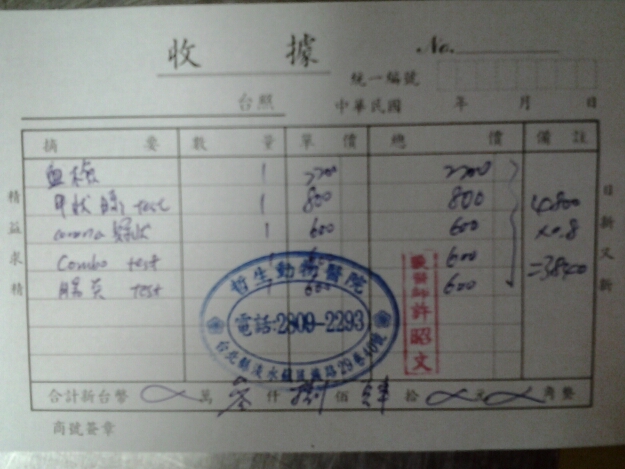 收據 No.
統一編號
台照 中華民國 年 月 日
摘要 數量 單價 總價 備註
血檢 1 2200 2200
甲狀腺 test 1 800 800 4800
corona 1 600 600 x0.8
Combo test 600 =3840
test 1 600 600
精益求精
日新又新
哲生動物醫院
電話:2809-2293
台北縣淡水鎮民族路29巷40號
獸醫師許昭文
合計新台幣 萬 仟 佰 拾 元 角整
商號簽章